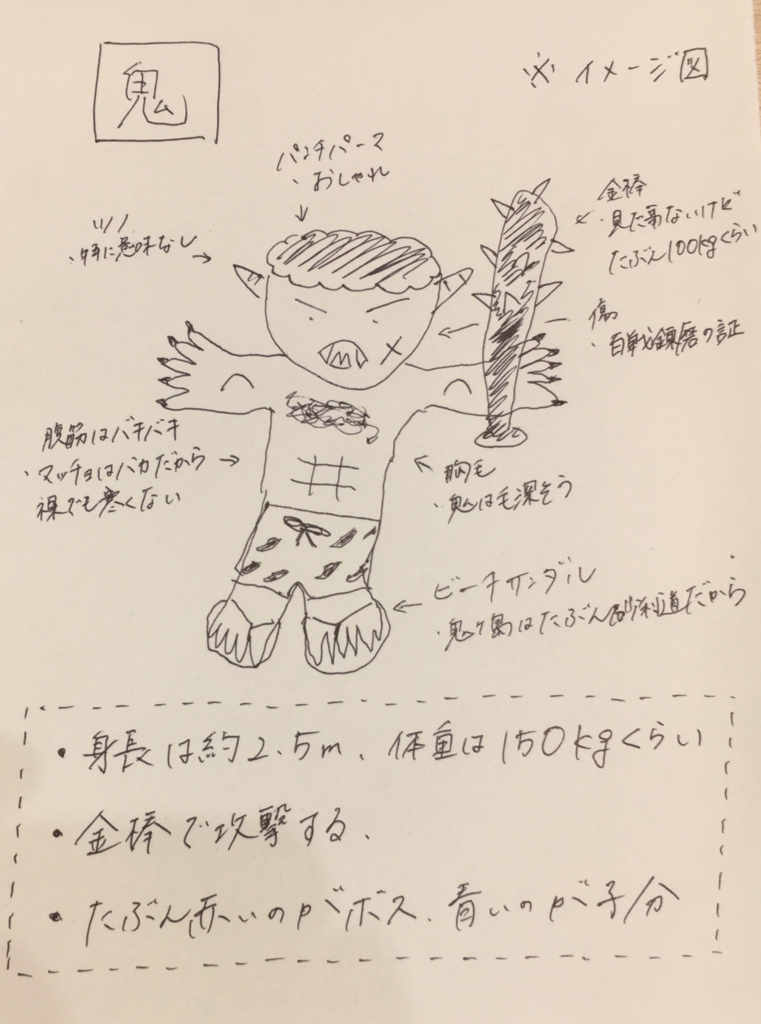 鬼
※イメージ図
パンチパーマ
・おしゃれ
ツノ
・特に意味なし
金棒
・見た事ないけど
たぶん100kgくらい
傷
・百戦錬磨の証
腹筋はバキバキ
・マッチョはバカだから
裸でも寒くない
胸毛
・鬼は毛深そう
ビーチサンダル
・鬼ヶ島はたぶん砂利道だから
・身長は約2.5m、体重は150kgくらい
・金棒で攻撃する、
・たぶん赤いのがボス、青いのが子分